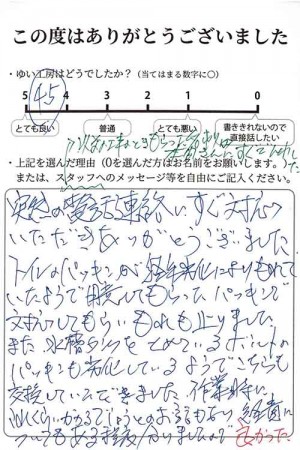 この度はありがとうございました
・ゆい工房はどうでしたか？（当てはまる数字に○）
5 4.5 4 3 2 1 0
とても良い 普通 とても悪い 書ききれないので直接話したい
・上記を選んだ理由（0を選んだ方はお名前をお願いします。）
または、スタッフへのメッセージ等を自由にご記入ください。
突然の電話連絡にすぐ対応
いただきありがとうございました
トイレのパッキンが経年劣化によりもれて
いたようで用意してもらったパッキンで
対応してもらいもれも止りました
また水槽タンクをとめているボルトの
パッキンも劣化しているようでそちらも
交換していただきました 作業時に
いくらかかるでしょうとのお話もなく 金額に
ついてもある程度分りましたので
よかった